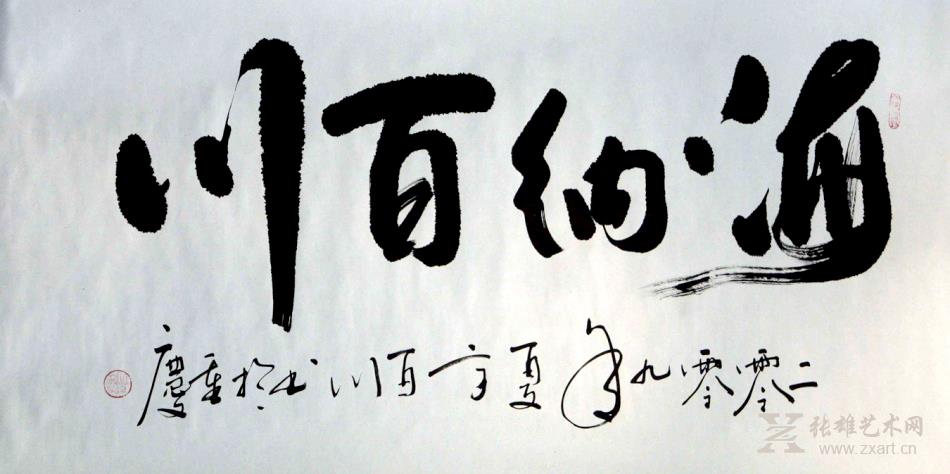 海纳百川
二零零九年夏方百川书于重慶
张雄艺术网
www.zxart.cn